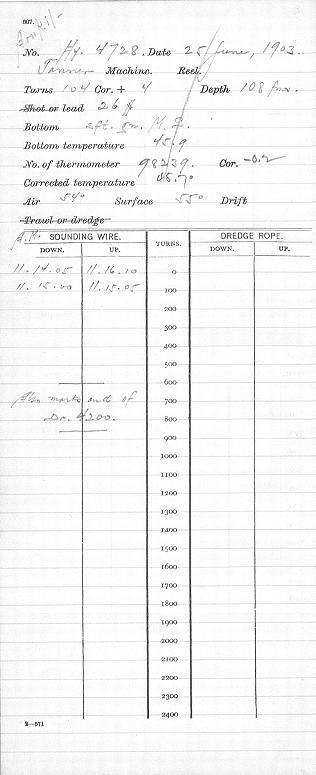 807.
No. Hy. 4728. Date 25 June, 1903.
Tanner Machine. Reel.
Turns 104 Cor. + 4 Depth 108 fms.
Shot or lead 26 #
Bottom sft. gn. M.
Bottom temperature 45.9
No. of thermometer 98239. Cor. -0.2
Corrected temperature 45.7°
Air 54° Surface 55° Drift
Trawl or dredge
A.M. SOUNDING WIRE. TURNS. DREDGE ROPE.
DOWN. UP. DOWN. UP.
11.14.05 11.16.10 0
11.15.00 11.15.05 100
200
300
400
500
600
Also marks end of 700
Dr. 4200. 800
900
1000
1100
1200
1300
1400
1500
1600
1700
1800
1900
2000
2100
2200
2300
2400
2—571